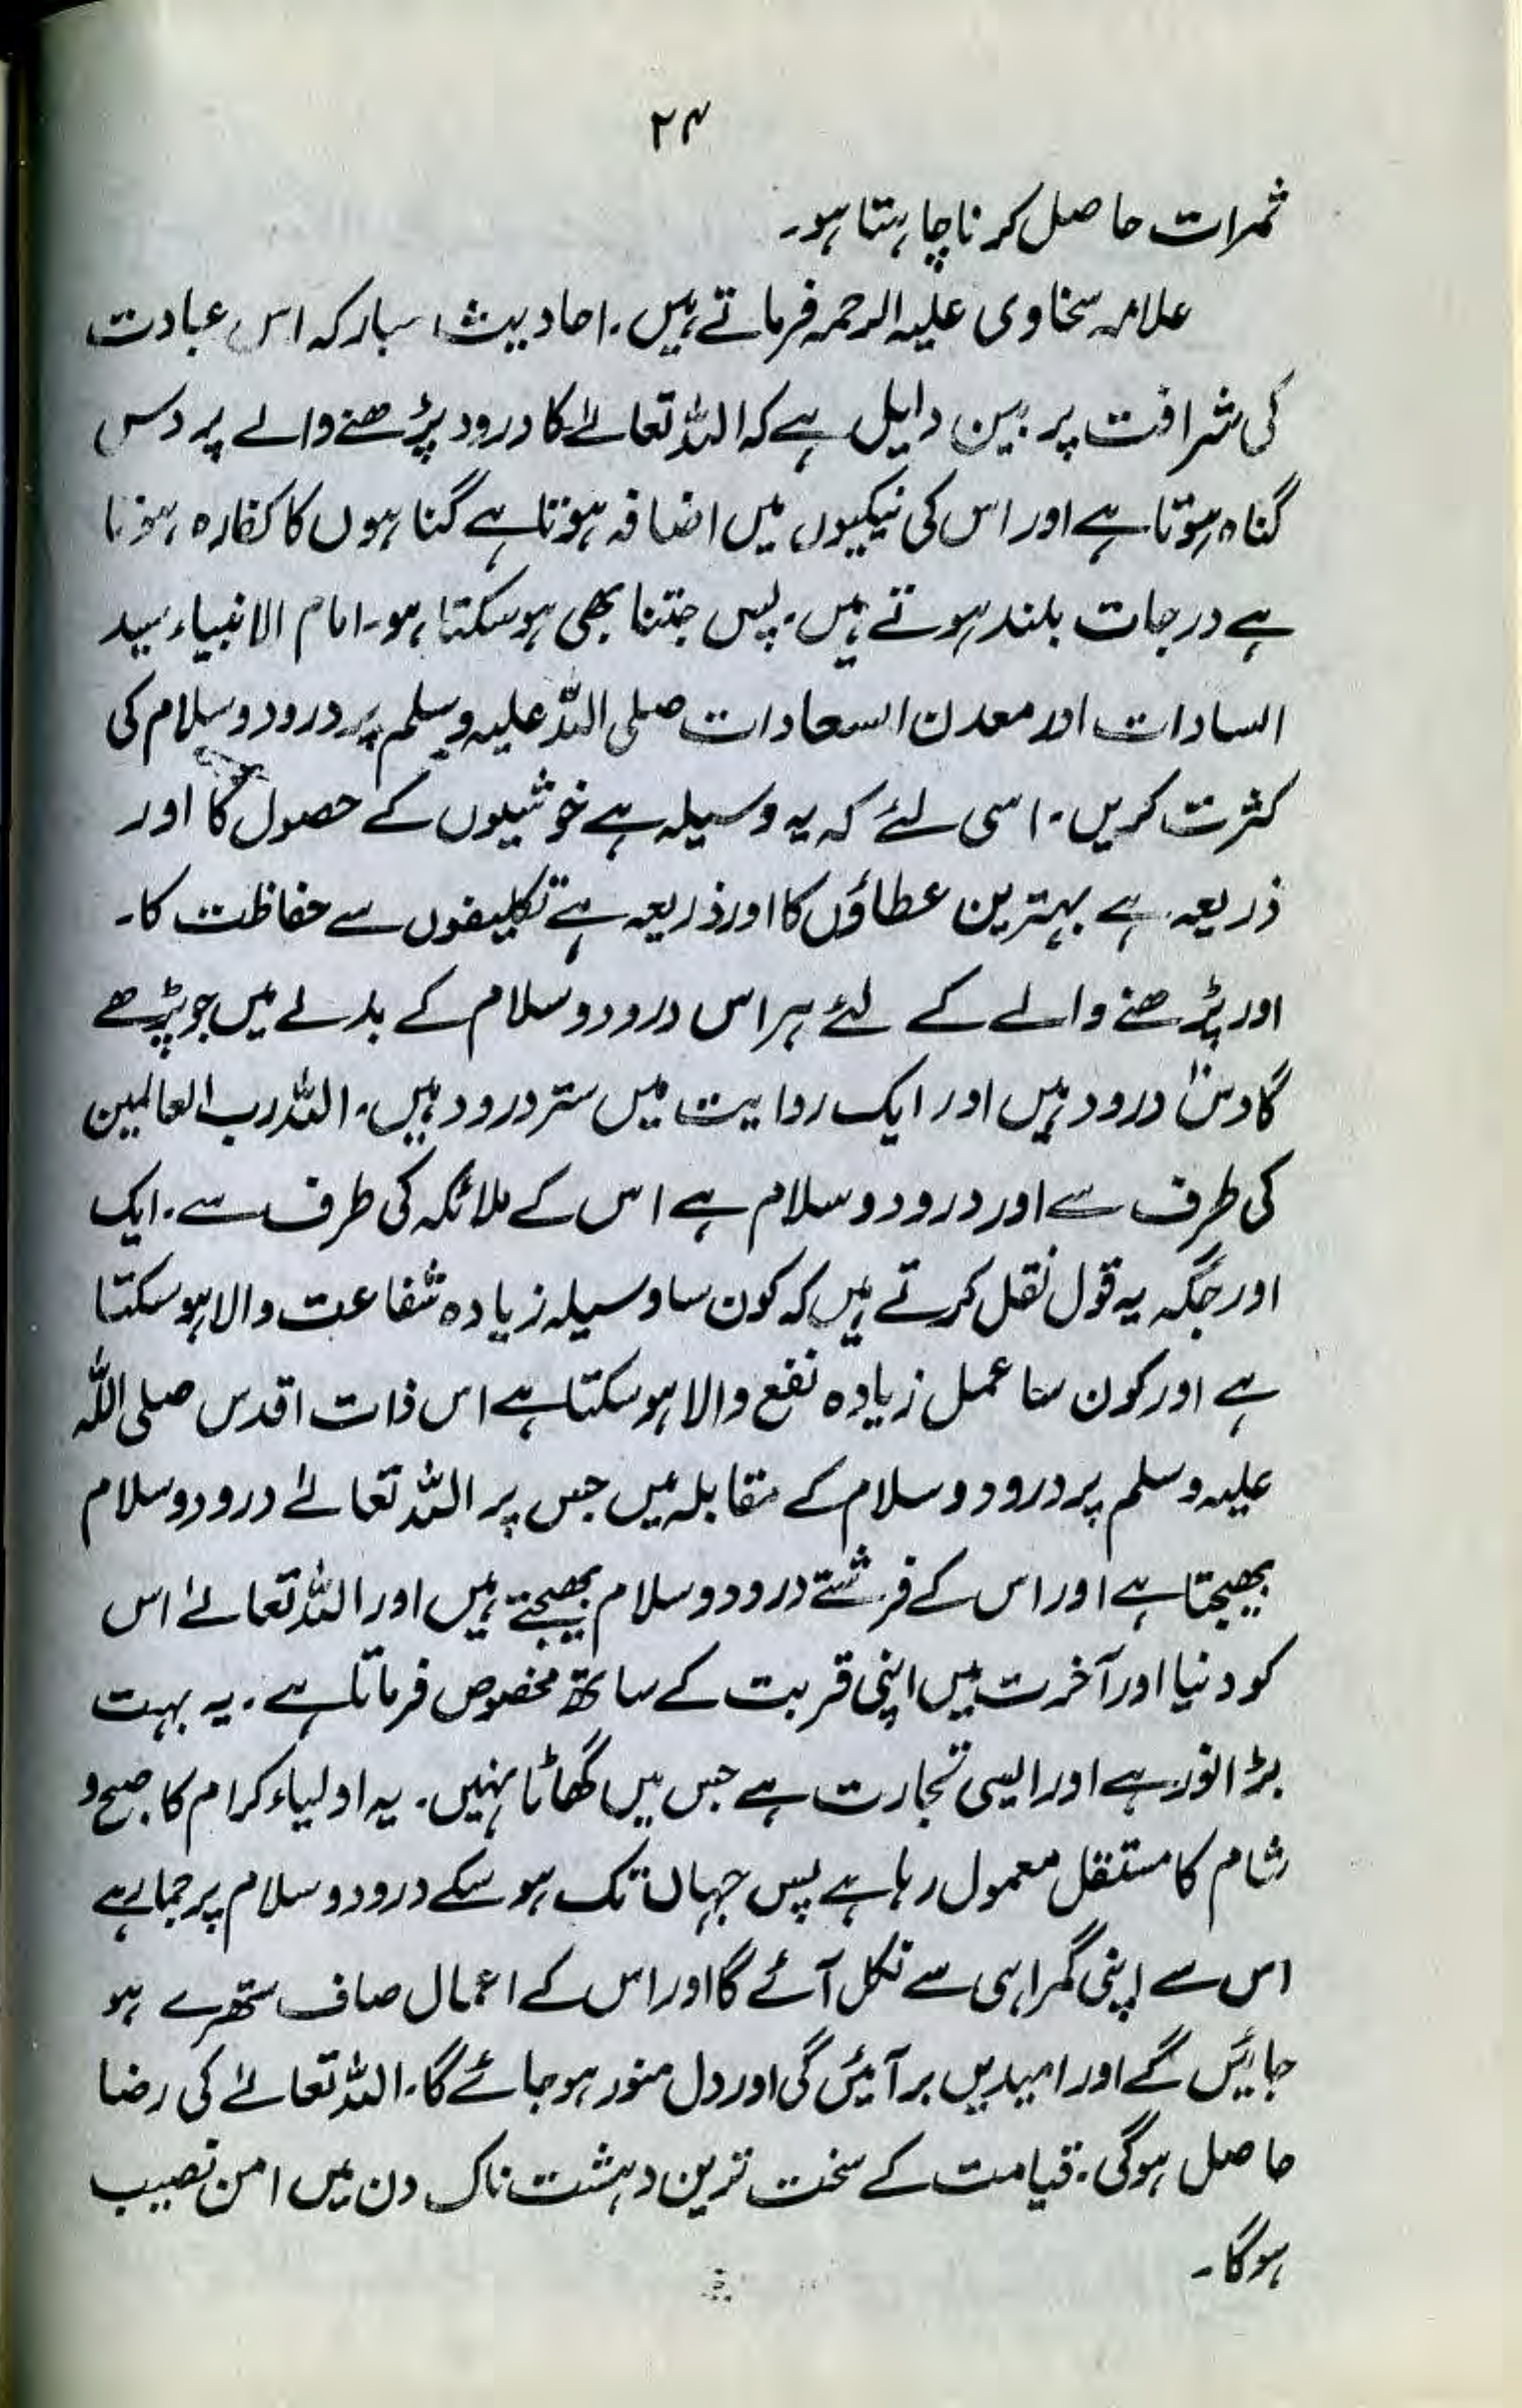 ۲۴
ثمرات حاصل کرنا چاہتا ہو۔
علامہ سخاوی علیہ الرحمہ فرماتے ہیں۔ احادیث مبارکہ اس عبادت
کی شرافت پر بین دلیل ہے کہ اللہ تعالےٰ کا درود پڑھنے والے پر دس
گناہ ہوتا ہے اور اس کی نیکیوں میں اضافہ ہوتا ہے گناہوں کا کفارہ ہوتا
ہے درجات بلند ہوتے ہیں۔ پس جتنا بھی ہو سکتا ہو۔ امام الانبیاء سید
السادات اور معدن السعادات صلی اللہ علیہ وسلم پر درود و سلام کی
کثرت کریں۔ اسی لئے کہ یہ وسیلہ ہے خوشیوں کے حصول کا اور
ذریعہ ہے بہترین عطاؤں کا اور ذریعہ ہے تکلیفوں سے حفاظت کا۔
اور پڑھنے والے کے لئے ہر اس درود و سلام کے بدلے میں جو پڑھے
گا دس درود ہیں اور ایک روایت میں ستر درود ہیں۔ اللہ رب العالمین
کی طرف سے اور درود و سلام ہے اس کے ملائکہ کی طرف سے۔ ایک
اور جگہ یہ قول نقل کرتے ہیں کہ کون سا وسیلہ زیادہ شفاعت والا ہو سکتا
ہے اور کون سا عمل زیادہ نفع والا ہو سکتا ہے اس ذات اقدس صلی اللہ
علیہ وسلم پر درود و سلام کے مقابلہ میں جس پر اللہ تعالےٰ درود و سلام
بھیجتا ہے اور اس کے فرشتے درود و سلام بھیجتے ہیں اور اللہ تعالےٰ اس
کو دنیا اور آخرت میں اپنی قربت کے ساتھ مخصوص فرماتا ہے۔ یہ بہت
بڑا نور ہے اور ایسی تجارت ہے جس میں گھاٹا نہیں۔ یہ اولیاء کرام کا صبح و
شام کا مستقل معمول رہا ہے پس جہاں تک ہو سکے درود و سلام پر جما رہے
اس سے اپنی گمراہی سے نکل آئے گا اور اس کے اعمال صاف ستھرے ہو
جائیں گے اور امیدیں بر آئیں گی اور دل منور ہو جائے گا۔ اللہ تعالےٰ کی رضا
حاصل ہوگی۔ قیامت کے سخت ترین دہشت ناک دن میں امن نصیب
ہوگا۔